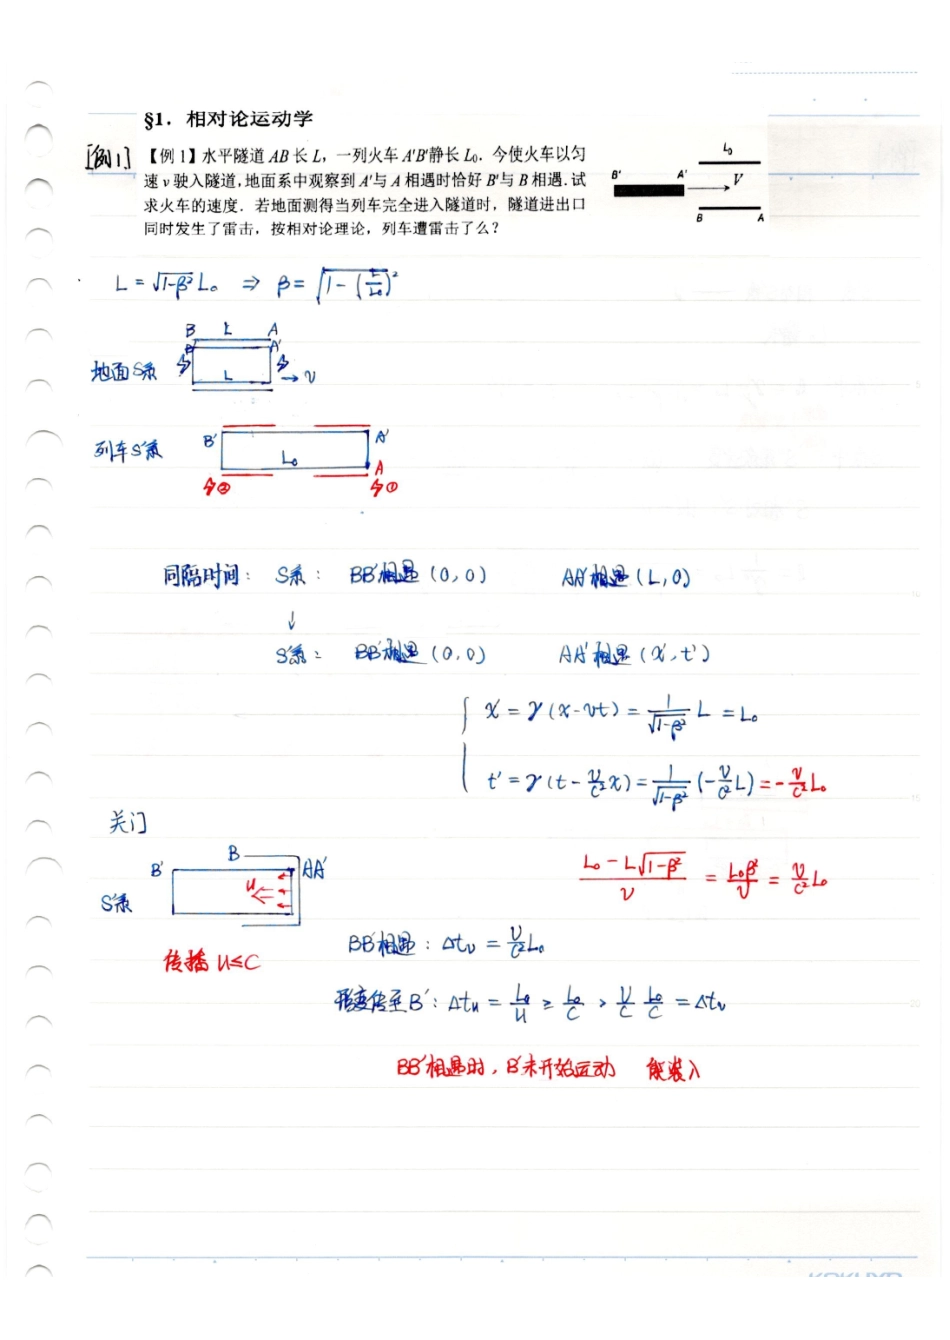 §1. 相对论运动学
[例1]
【例 1】水平隧道 AB 长 L，一列火车 A'B'静长 L₀. 今使火车以匀
速 v 驶入隧道,地面系中观察到 A'与 A 相遇时恰好 B'与 B 相遇.试
求火车的速度. 若地面测得当列车完全进入隧道时，隧道进出口
同时发生了雷击，按相对论理论，列车遭雷击了么？
L₀
B' A' V
B A
L = √(1-β²) L₀ ⇒ β = √(1-(L/L₀)²)
B L A
B' A'
地面S系 L → v
列车S'系 B' L₀ A'
A
② ①
间隔时间： S系： BB'相遇 (0, 0) AA'相遇 (L, 0)
↓
S'系： BB'相遇 (0, 0) AA'相遇 (x', t')
x' = γ(x-vt) = 1/√(1-β²) L = L₀
t' = γ(t - v/c² x) = 1/√(1-β²) (-v/c² L) = -v/c² L₀
关门
B' B AA'
u
S'系
(L₀ - L√(1-β²))/v = L₀β²/v = v/c² L₀
传播 u≤c
BB'相遇：Δtᵥ = v/c² L₀
形变传至B'：Δtᵤ = L₀/u ≥ L₀/c > v/c L₀/c = Δtᵥ
BB'相遇时，B'未开始运动 能装入
KOKUYO